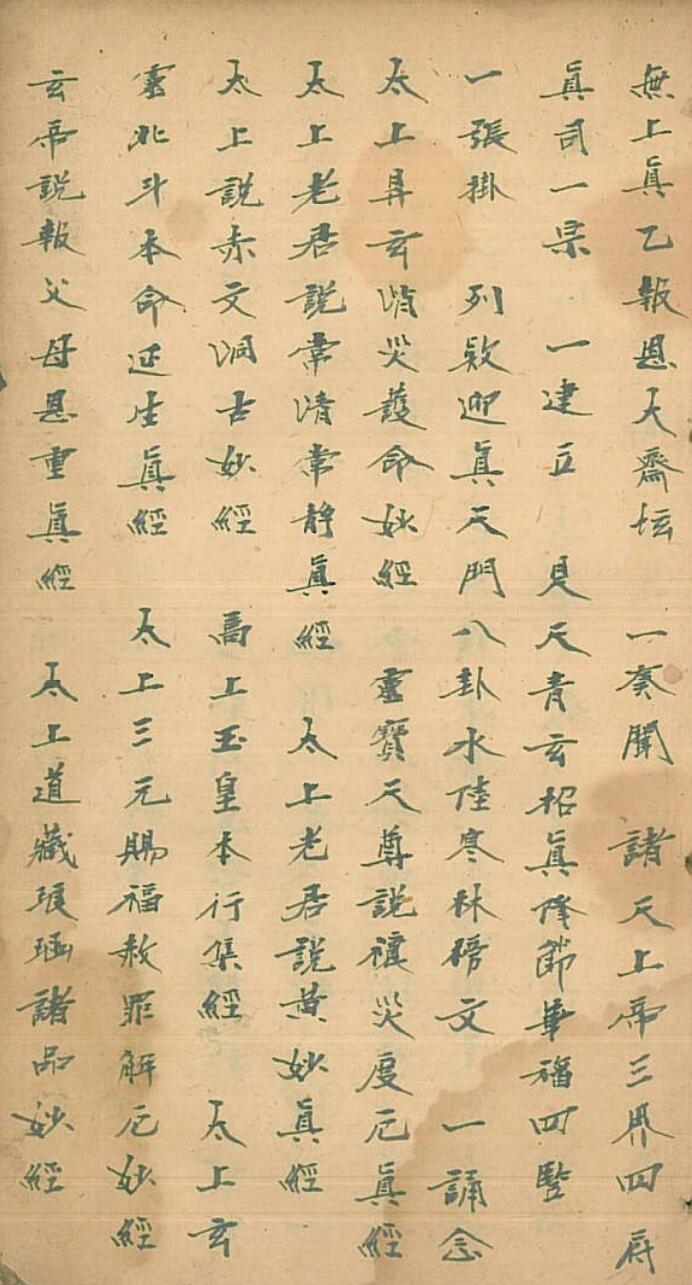 無上眞乙報恩大齋坛 一奏聞 諸天上帝三界四府
眞司一宗 一建立 見天青玄招眞降節華旛四竪
一張掛 列欵迎眞天門八卦水陸寒林榜文 一誦念
太上昇玄消災護命妙經 灵寶天尊說禳災度厄眞經
太上老君說常清常静眞經 太上老君說黄妙眞經
太上說赤文洞古妙經 高上玉皇本行集經 太上玄
灵北斗本命延生眞經 太上三元賜福赦罪解厄妙經
玄帝說報父母恩重眞經 太上道藏琅函諸品妙經